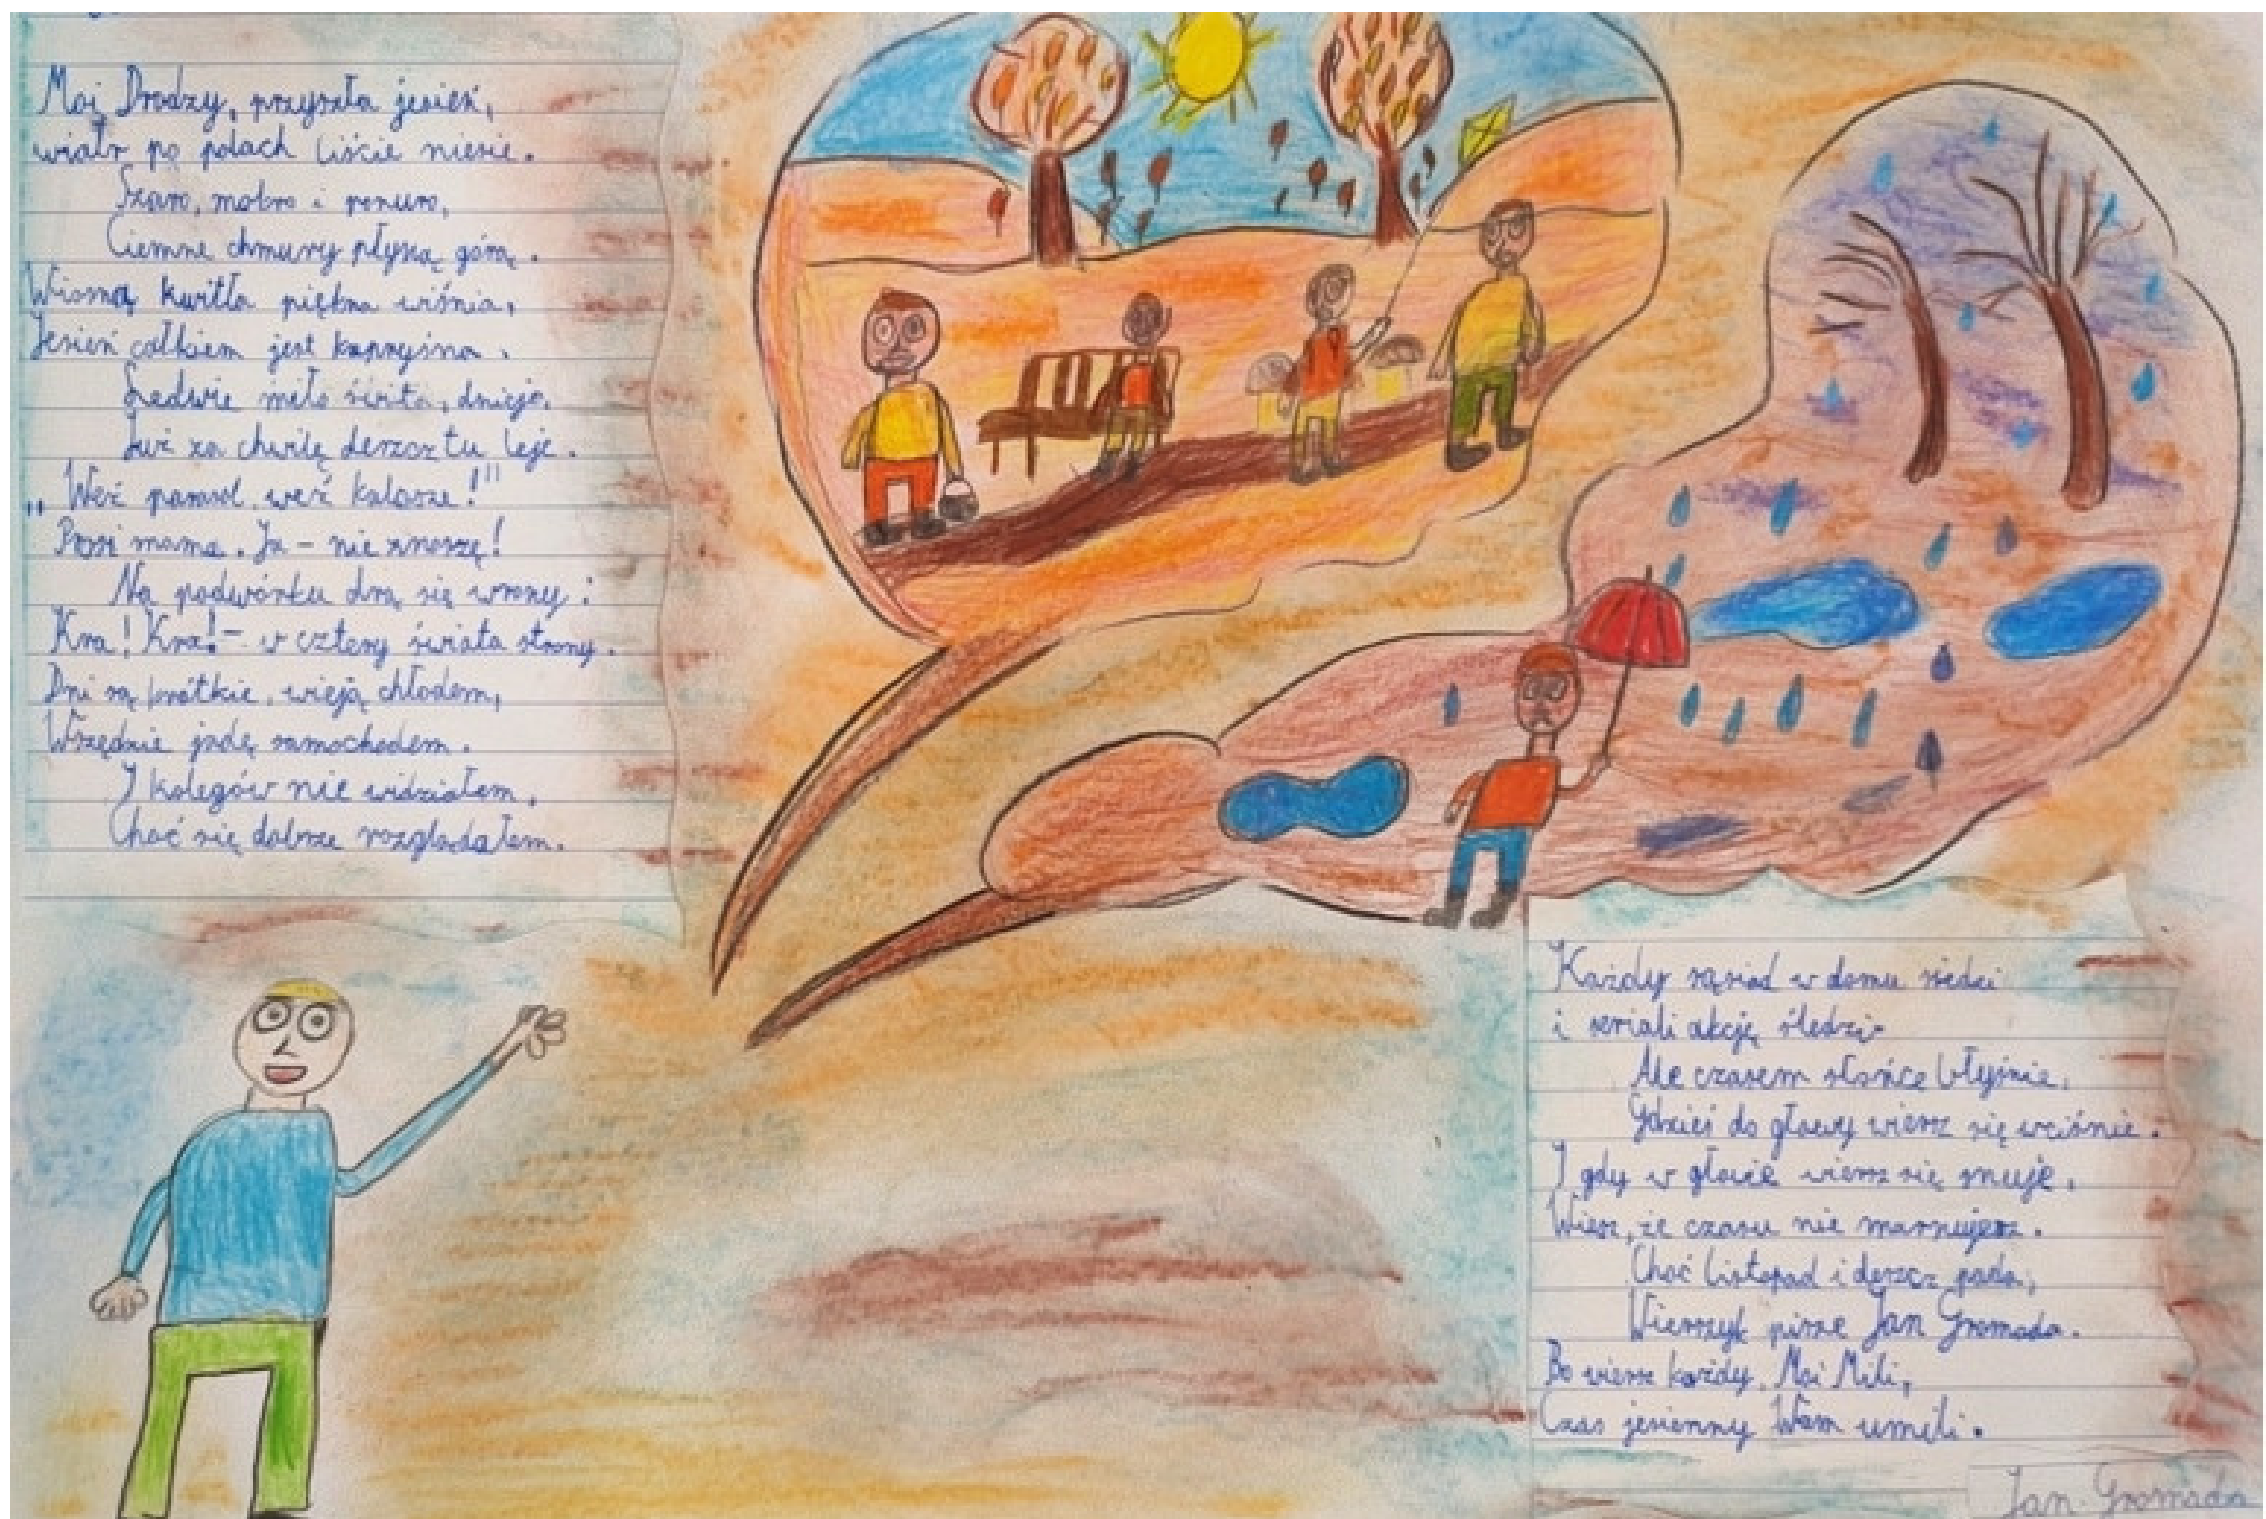 Moi Drodzy, przyszła jesień,
wiatr po polach liście niesie.
Szaro, mokro i ponuro,
Ciemne chmury płyną górą.
Wiosną kwitła piękna wiśnia,
Jesień całkiem jest kapryśna.
Ledwie miło świta, dnieje,
Już za chwilę deszcz tu leje.
„Weź parasol, weź kalosze!"
Prosi mama. Ja - nie znoszę!
Na podwórku drą się wrony:
Kra! Kra! - w cztery świata strony.
Dni są krótkie, wieją chłodem,
Wszędzie jadę samochodem.
I kolegów nie widziałem,
Choć się dobrze rozglądałem.
Każdy sąsiad w domu siedzi
i seriali akcję śledzi
Ale czasem słońce błyśnie,
Gdzieś do głowy wiersz się wciśnie.
I gdy w głowie wiersz się snuje,
Wiesz, że czasu nie marnujesz.
Choć listopad i deszcz pada,
Wierszyk pisze Jan Gromada.
Bo wiersz każdy, Moi Mili,
Czas jesienny Wam umili.
Jan Gromada